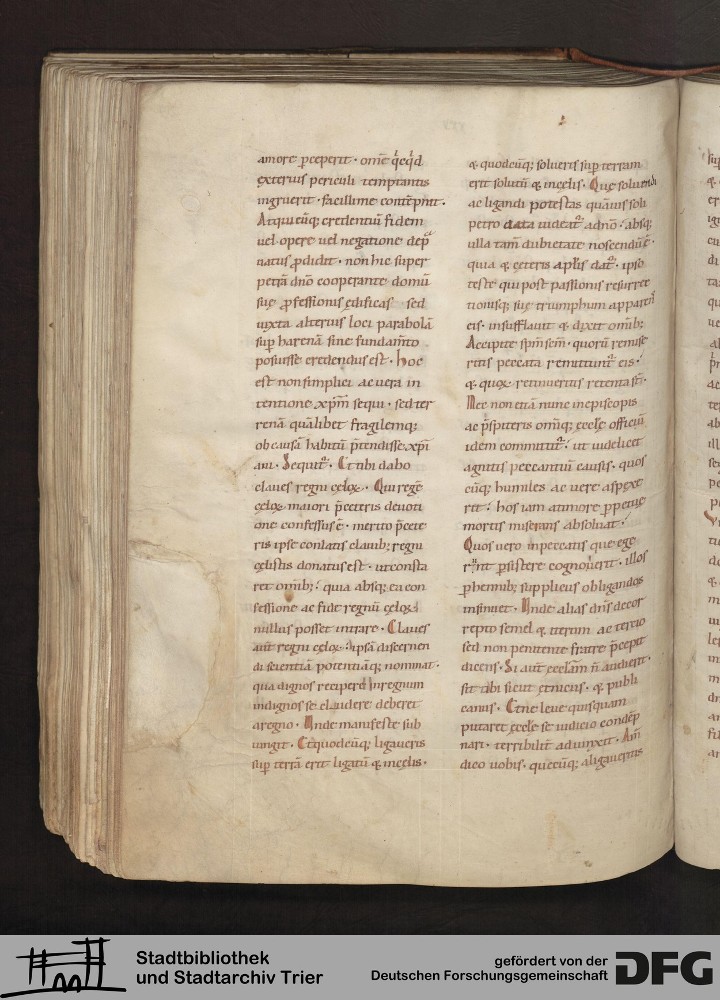 amore p̱ceperit · om̅e q̇cq̇d
exterius periculi temptantis
ingruerit · facillime conte̅pnit ·
Atqui cu̅q; credentiu̅ fidem
uel opere uel negatione dep̅
uatus p̱didit · non hic super
petra̅ dn̅o cooperante domu̅
sue̜ p̱fessionis e̜dificas sed
iuxta alterius loci parabola̅
sup̱ harena̅ sine fundam̅to
posuisse credendus est · hoc
est non simplici ac uera in
tentione xp̅m̅ sequi · sed ter
rena̅ qua̅libet fragilemq;
ob causa̅ habitu̅ p̅tendisse xp̅i
ani · Sequit᷑ · Et tibi dabo
claues regni ce̜loꝝ · Qui rege̅
ce̜loꝝ maiori p̅ceteris deuoti
one confessus e̅ · merito p̅cete
ris ipse conlatis clauib; regni
ce̜listis donatus est · ut consta
ret omib; quia absq; ea con
fessione ac fide regnu̅ ce̜loꝝ
nullus posset intrare · Claues
aut̅ regni ce̜loꝝ · ipsa̅ discernen
di scientia̅ potentia̅q; nominat ·
qua dignos recipere in regnum
indignos se cludere deberet
a regno · Unde manifeste sub
iungit · Et quodcu̅q; ligaueris
sup̱ terra̅ erit ligatu̅ & in ce̜lis ·
& quodcu̅q; solueris sup̱ terram
erit solutu̅ & in ce̜lis · Que̜ soluendi
ac ligandi potestas qua̅uis soli
petro data uideat᷑ a dn̅o · absq;
ulla tam̅ dubietate noscendu̅ e̅ ·
quia & ce̜teris ap̅lis dat᷑ · ipso
teste qui post passionis resurrec
tionisq; sue̜ triumphum apparen̅
eis · insufflauit & dixit om̅ib;
Accipite sp̅m sc̅m · quoru̅ remise
ritis peccata remittunt᷑ eis ·
& quoꝝ retinueritis retenta s̅t ·
Nec non etia̅ nunc in episcopis
ac p̅sbiteris om̅iq; e̜ccle̜ officiu̅
idem committit᷑ · ut uidelicet
agnitis peccantiu̅ causis · quos
cu̅q; humiles ac uere̜ aspexe
rit · hos iam a timore p̱petue̜
mortis miserans absoluat ·
Quos uero in peccatis que̜ ege
r̅nt persistere cognouerit · illos
p̱hennib; suppliciis obligandos
insinuet · Unde alias dn̅s de cor
repto semel & iterum ac tercio
sed non penitente fratre p̅cepit
dicens · Si aut̅ eccl̅am n̅ audierit ·
sit tibi sicut ethnicus · & publi
canus · Et ne leue quisquam
putaret e̜ccle̜ se iudicio conde̅p
nari · terribilit̅ adiunxit · Am̅
dico uobis · que̜cu̅q; aligaueritis
Stadtbibliothek
und Stadtarchiv Trier
gefördert von der
Deutschen Forschungsgemeinschaft
DFG